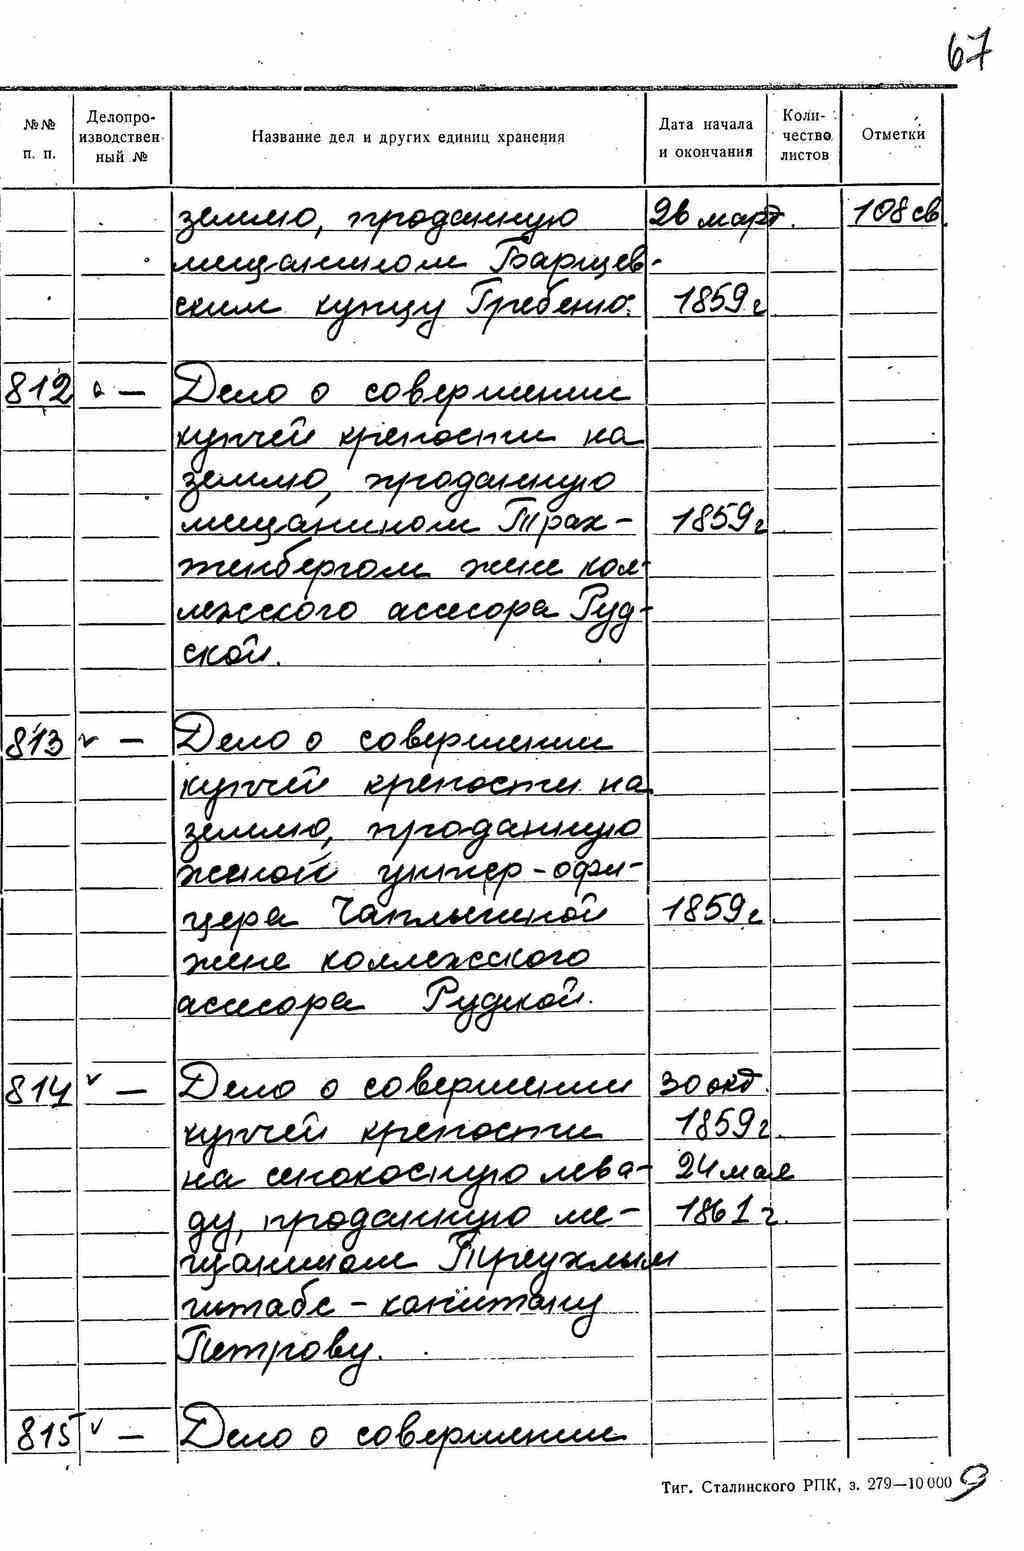 67
№№ п. п. Делопро-изводствен-ный № Название дел и других единиц хранения Дата начала и окончания Коли-чество листов Отметки
землю, проданную 26 март. 108 св.
мещанином Барщев-
ским купцу Гребеню. 1859 г.
812 — Дело о совершении
купчей крепости на
землю, проданную
мещанином Трах- 1859 г.
тенбергом жене кол-
лежского асесора Руд-
ской.
813 v — Дело о совершении
купчей крепости на
землю, проданную
женой унтер-офи-
цера Чаплыгиной 1859 г.
жене коллежского
асесора Рудской.
814 v — Дело о совершении 30 окт.
купчей крепости 1859 г.
на сенокосную лева- 24 мая
ду, проданную ме- 1861 г.
щанином Треухлым
штабс-капитану
Петрову.
815 v — Дело о совершении
Тиг. Сталинского РПК, з. 279—10 000 9